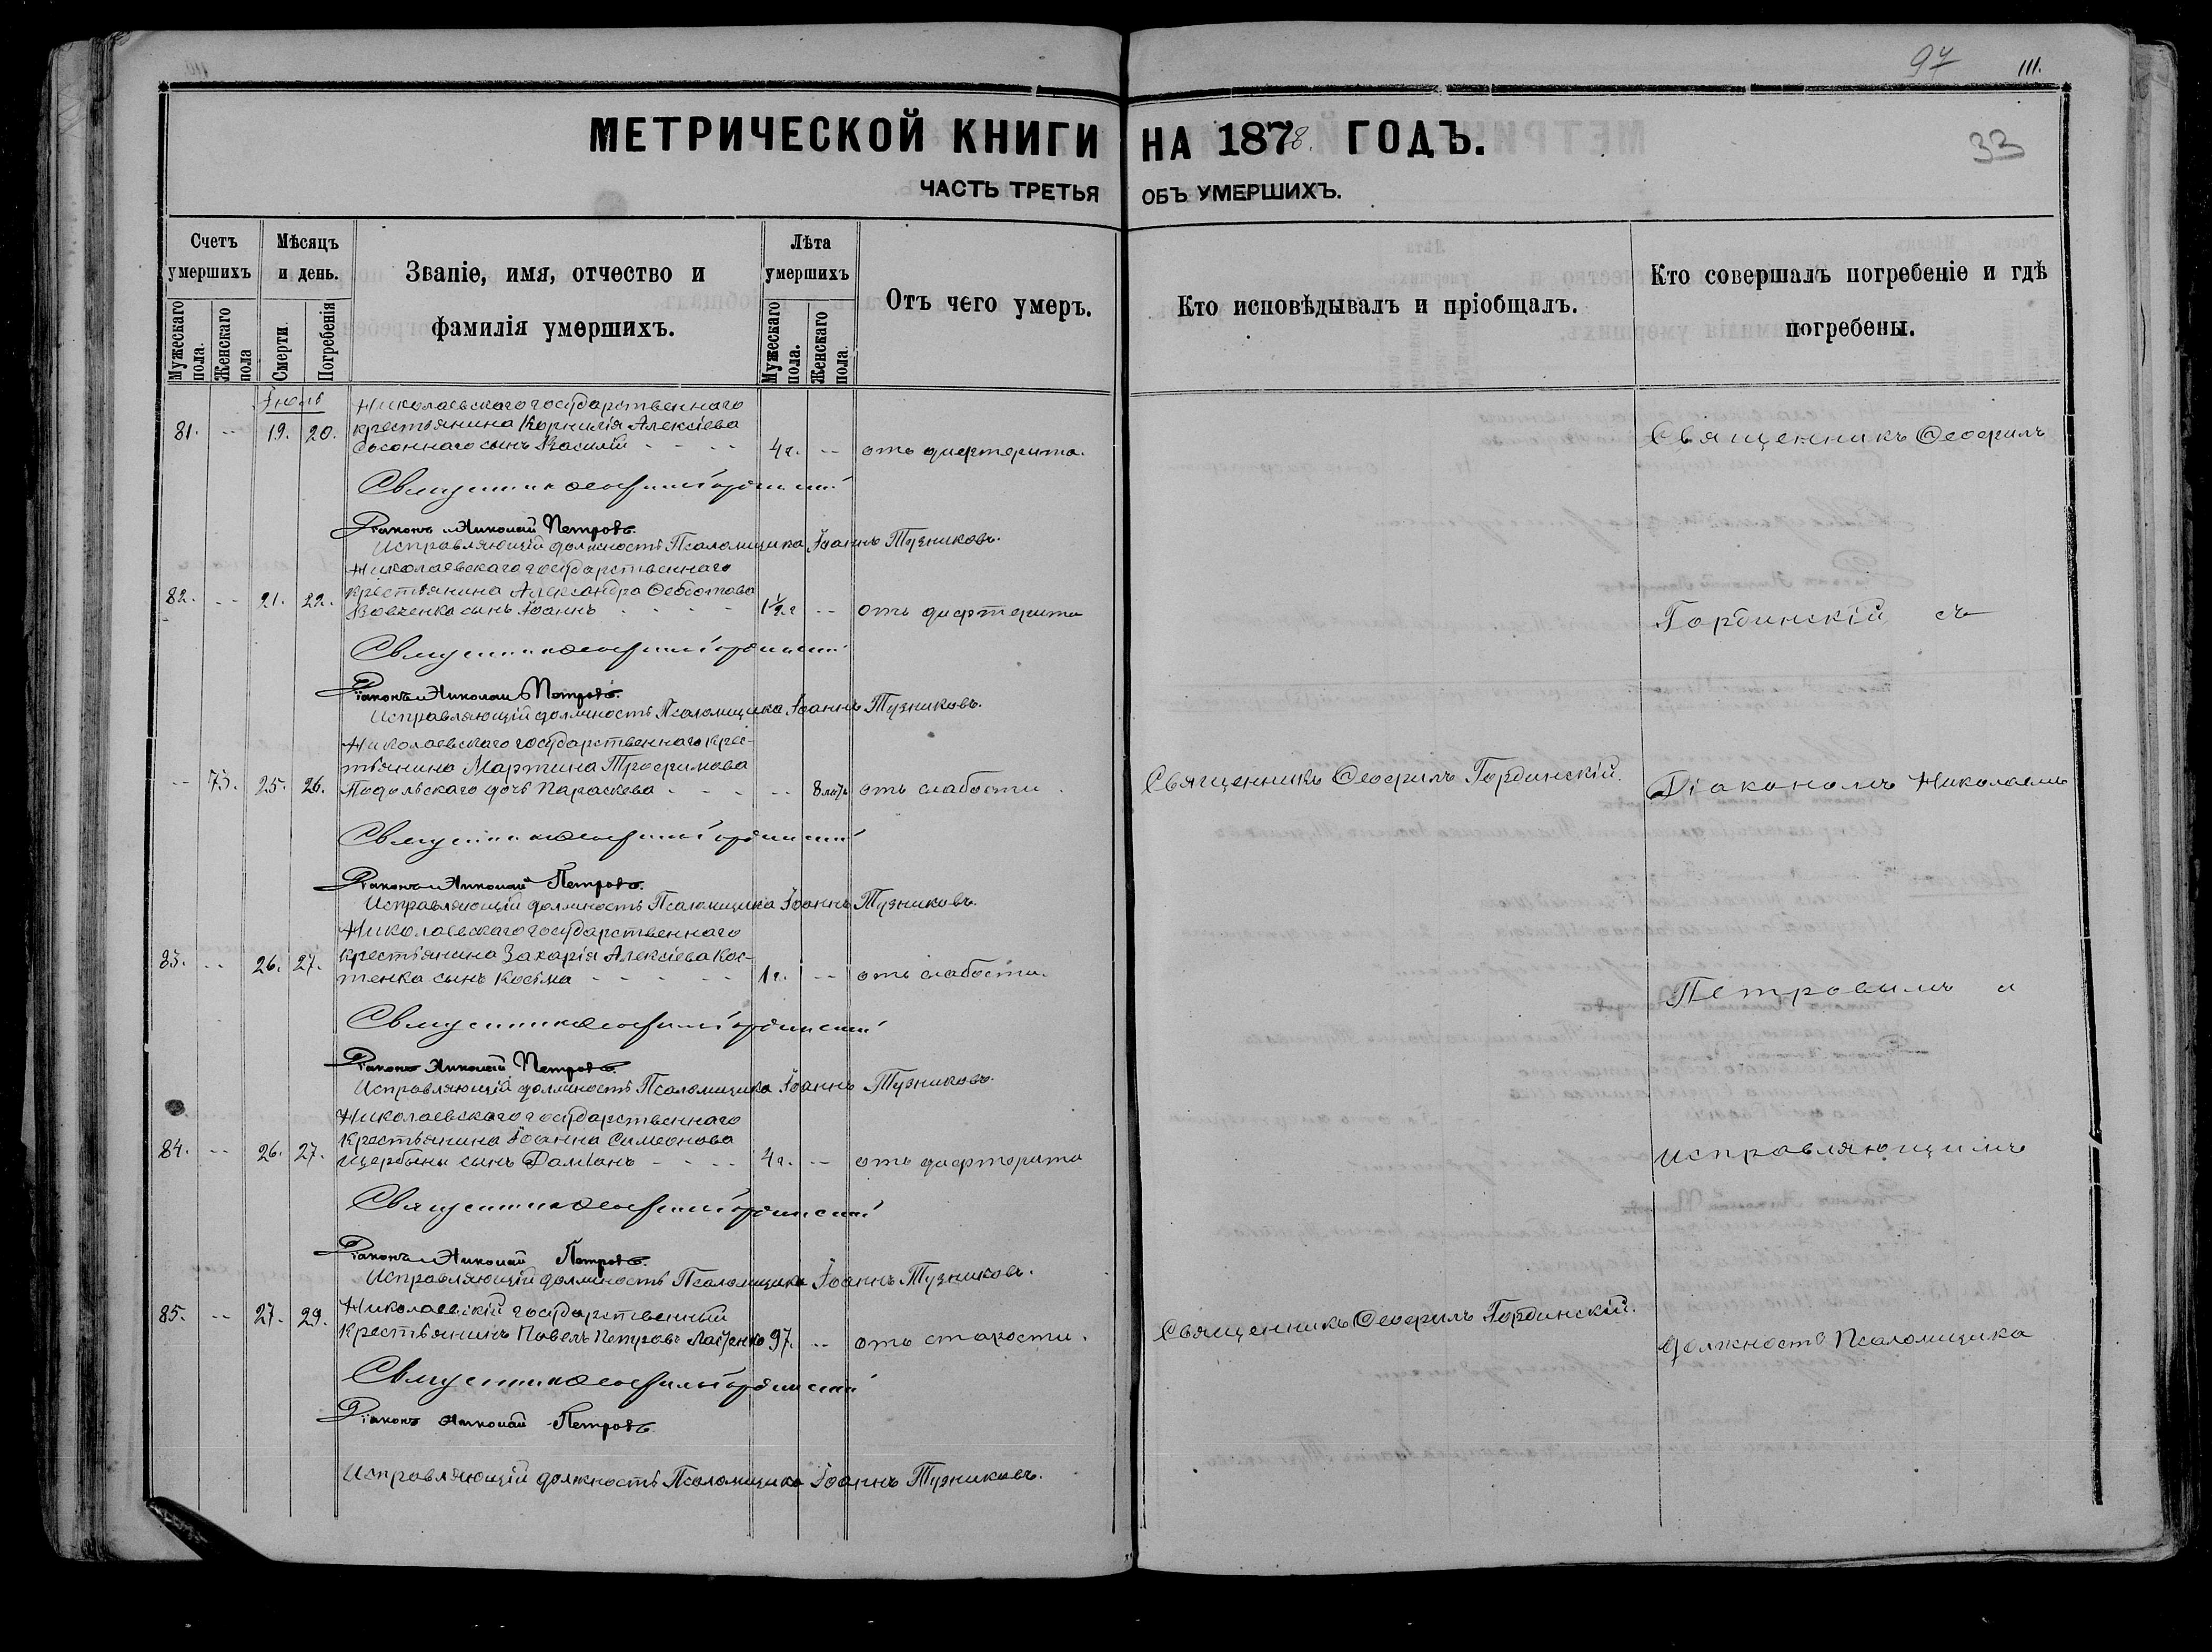 97 111.
МЕТРИЧЕСКОЙ КНИГИ НА 1878. ГОДЪ.
33
ЧАСТЬ ТРЕТЬЯ ОБЪ УМЕРШИХЪ.
Счетъ умершихъ
Мужескаго пола.
Женскаго пола
Мѣсяцъ и день.
Смерти.
Погребенія
Званіе, имя, отчество и
фамилія умершихъ.
Лѣта умершихъ
Мужескаго пола.
Женскаго пола.
Отъ чего умеръ.
Кто исповѣдывалъ и пріобщалъ.
Кто совершалъ погребеніе и гдѣ
погребены.
Николаевскаго государственнаго
81. -- 19. 20. крестьянина Корнилія Алексіева
сынъ Василій - - - 4 г. -- отъ дифтерита.
Священникъ Ѳеофилъ
Священникъ Ѳеофилъ Гординскій
Діаконъ Николай Петровъ.
Исправляющій должность Псаломщика Іоаннъ Тузниковъ.
Николаевскаго государственнаго
82. -- 21. 22. крестьянина Александра Ѳеодотова
Вовченка сынъ Іоаннъ - - - 1½ г -- отъ дифтерита
Гординскій съ
Священникъ Ѳеофилъ Гординскій
Діаконъ Николай Петровъ.
Исправляющій должность Псаломщика Іоаннъ Тузниковъ.
Николаевскаго государственнаго крес-
тьянина Мартина Трофимова
-- 73. 25. 26. Подольскаго дочь Параскева - - - -- 8 лѣтъ отъ слабости.
Священникъ Ѳеофилъ Гординскій.
Діакономъ Николаемъ
Священникъ Ѳеофилъ Гординскій
Діаконъ Николай Петровъ.
Исправляющій должность Псаломщика Іоаннъ Тузниковъ.
Николаевскаго государственнаго
83. -- 26. 27. крестьянина Захарія Алексіева Кос-
тенка сынъ Косьма - - - - - 1 г. -- отъ слабости.
Петровымъ и
Священникъ Ѳеофилъ Гординскій
Діаконъ Николай Петровъ.
Исправляющій должность Псаломщика Іоаннъ Тузниковъ.
Николаевскаго государственнаго
84. -- 26. 27. крестьянина Іоанна Симеонова
Щербины сынъ Даміанъ - - - - 4 г. -- отъ дифтерита
исправляющимъ
Священникъ Ѳеофилъ Гординскій
Діаконъ Николай Петровъ.
Исправляющій должность Псаломщика Іоаннъ Тузниковъ.
Николаевскій государственный
85. -- 27. 29. крестьянинъ Павелъ Петровъ 97. -- отъ старости.
Священникъ Ѳеофилъ Гординскій.
должность Псаломщика
Священникъ Ѳеофилъ Гординскій
Діаконъ Николай Петровъ
Исправляющій должность Псаломщика Іоаннъ Тузниковъ.